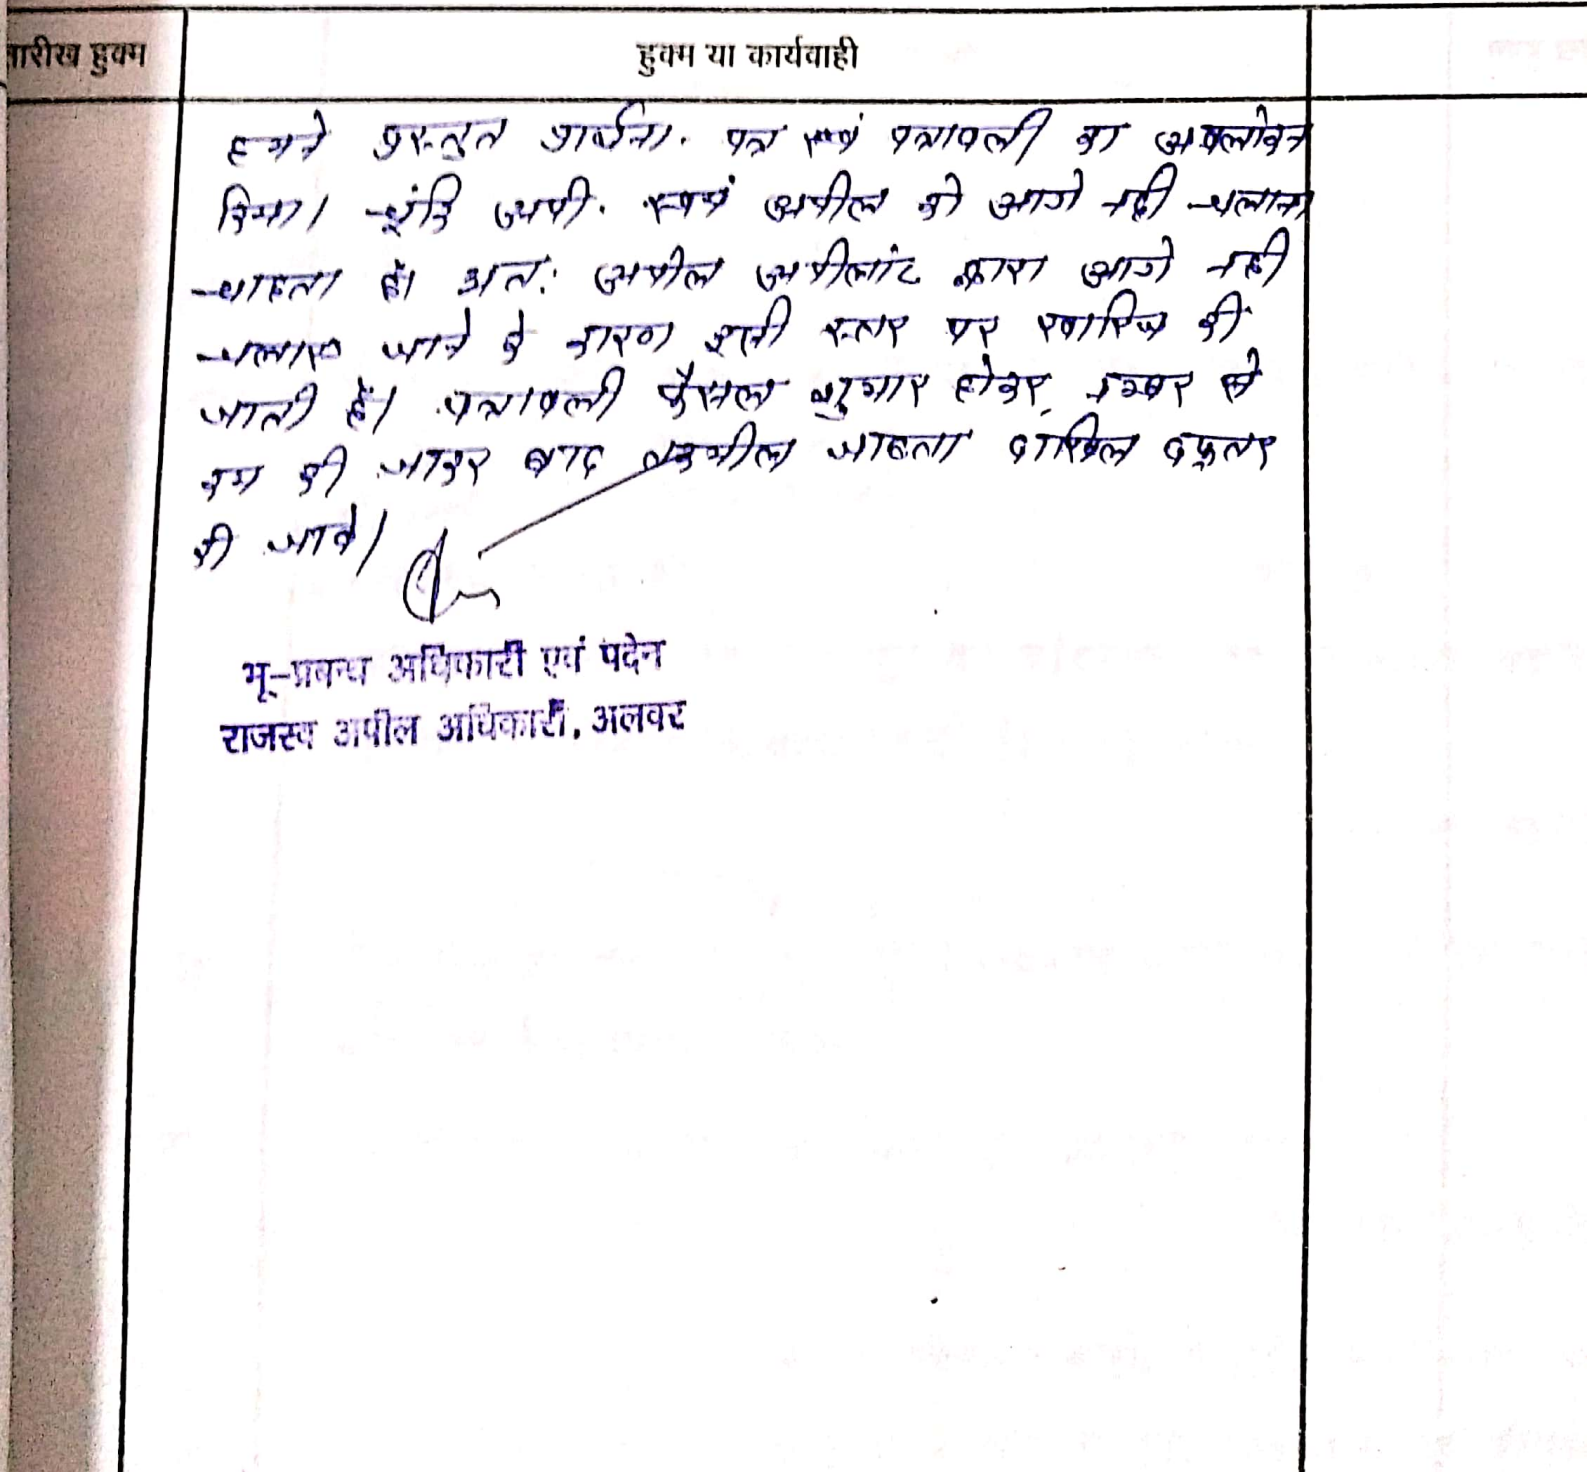 तारीख हुक्म
हुक्म या कार्यवाही
हमने प्रस्तुत प्रार्थना. पत्र एवं पत्रावली का अवलोकन
किया। चूंकि अपी. स्वयं अपील को आगे नही चलाना
चाहता है। अत: अपील अपीलांट द्वारा आगे नही
चलाए जाने के कारण इसी स्तर पर खारिज की
जाती है। पत्रावली फैसल शुमार होकर, नम्बर से
कम की जाकर बाद तकमील जाब्ता दाखिल दफ्तर
की जावे।
भू-प्रबन्ध अधिकारी एवं पदेन
राजस्व अपील अधिकारी, अलवर